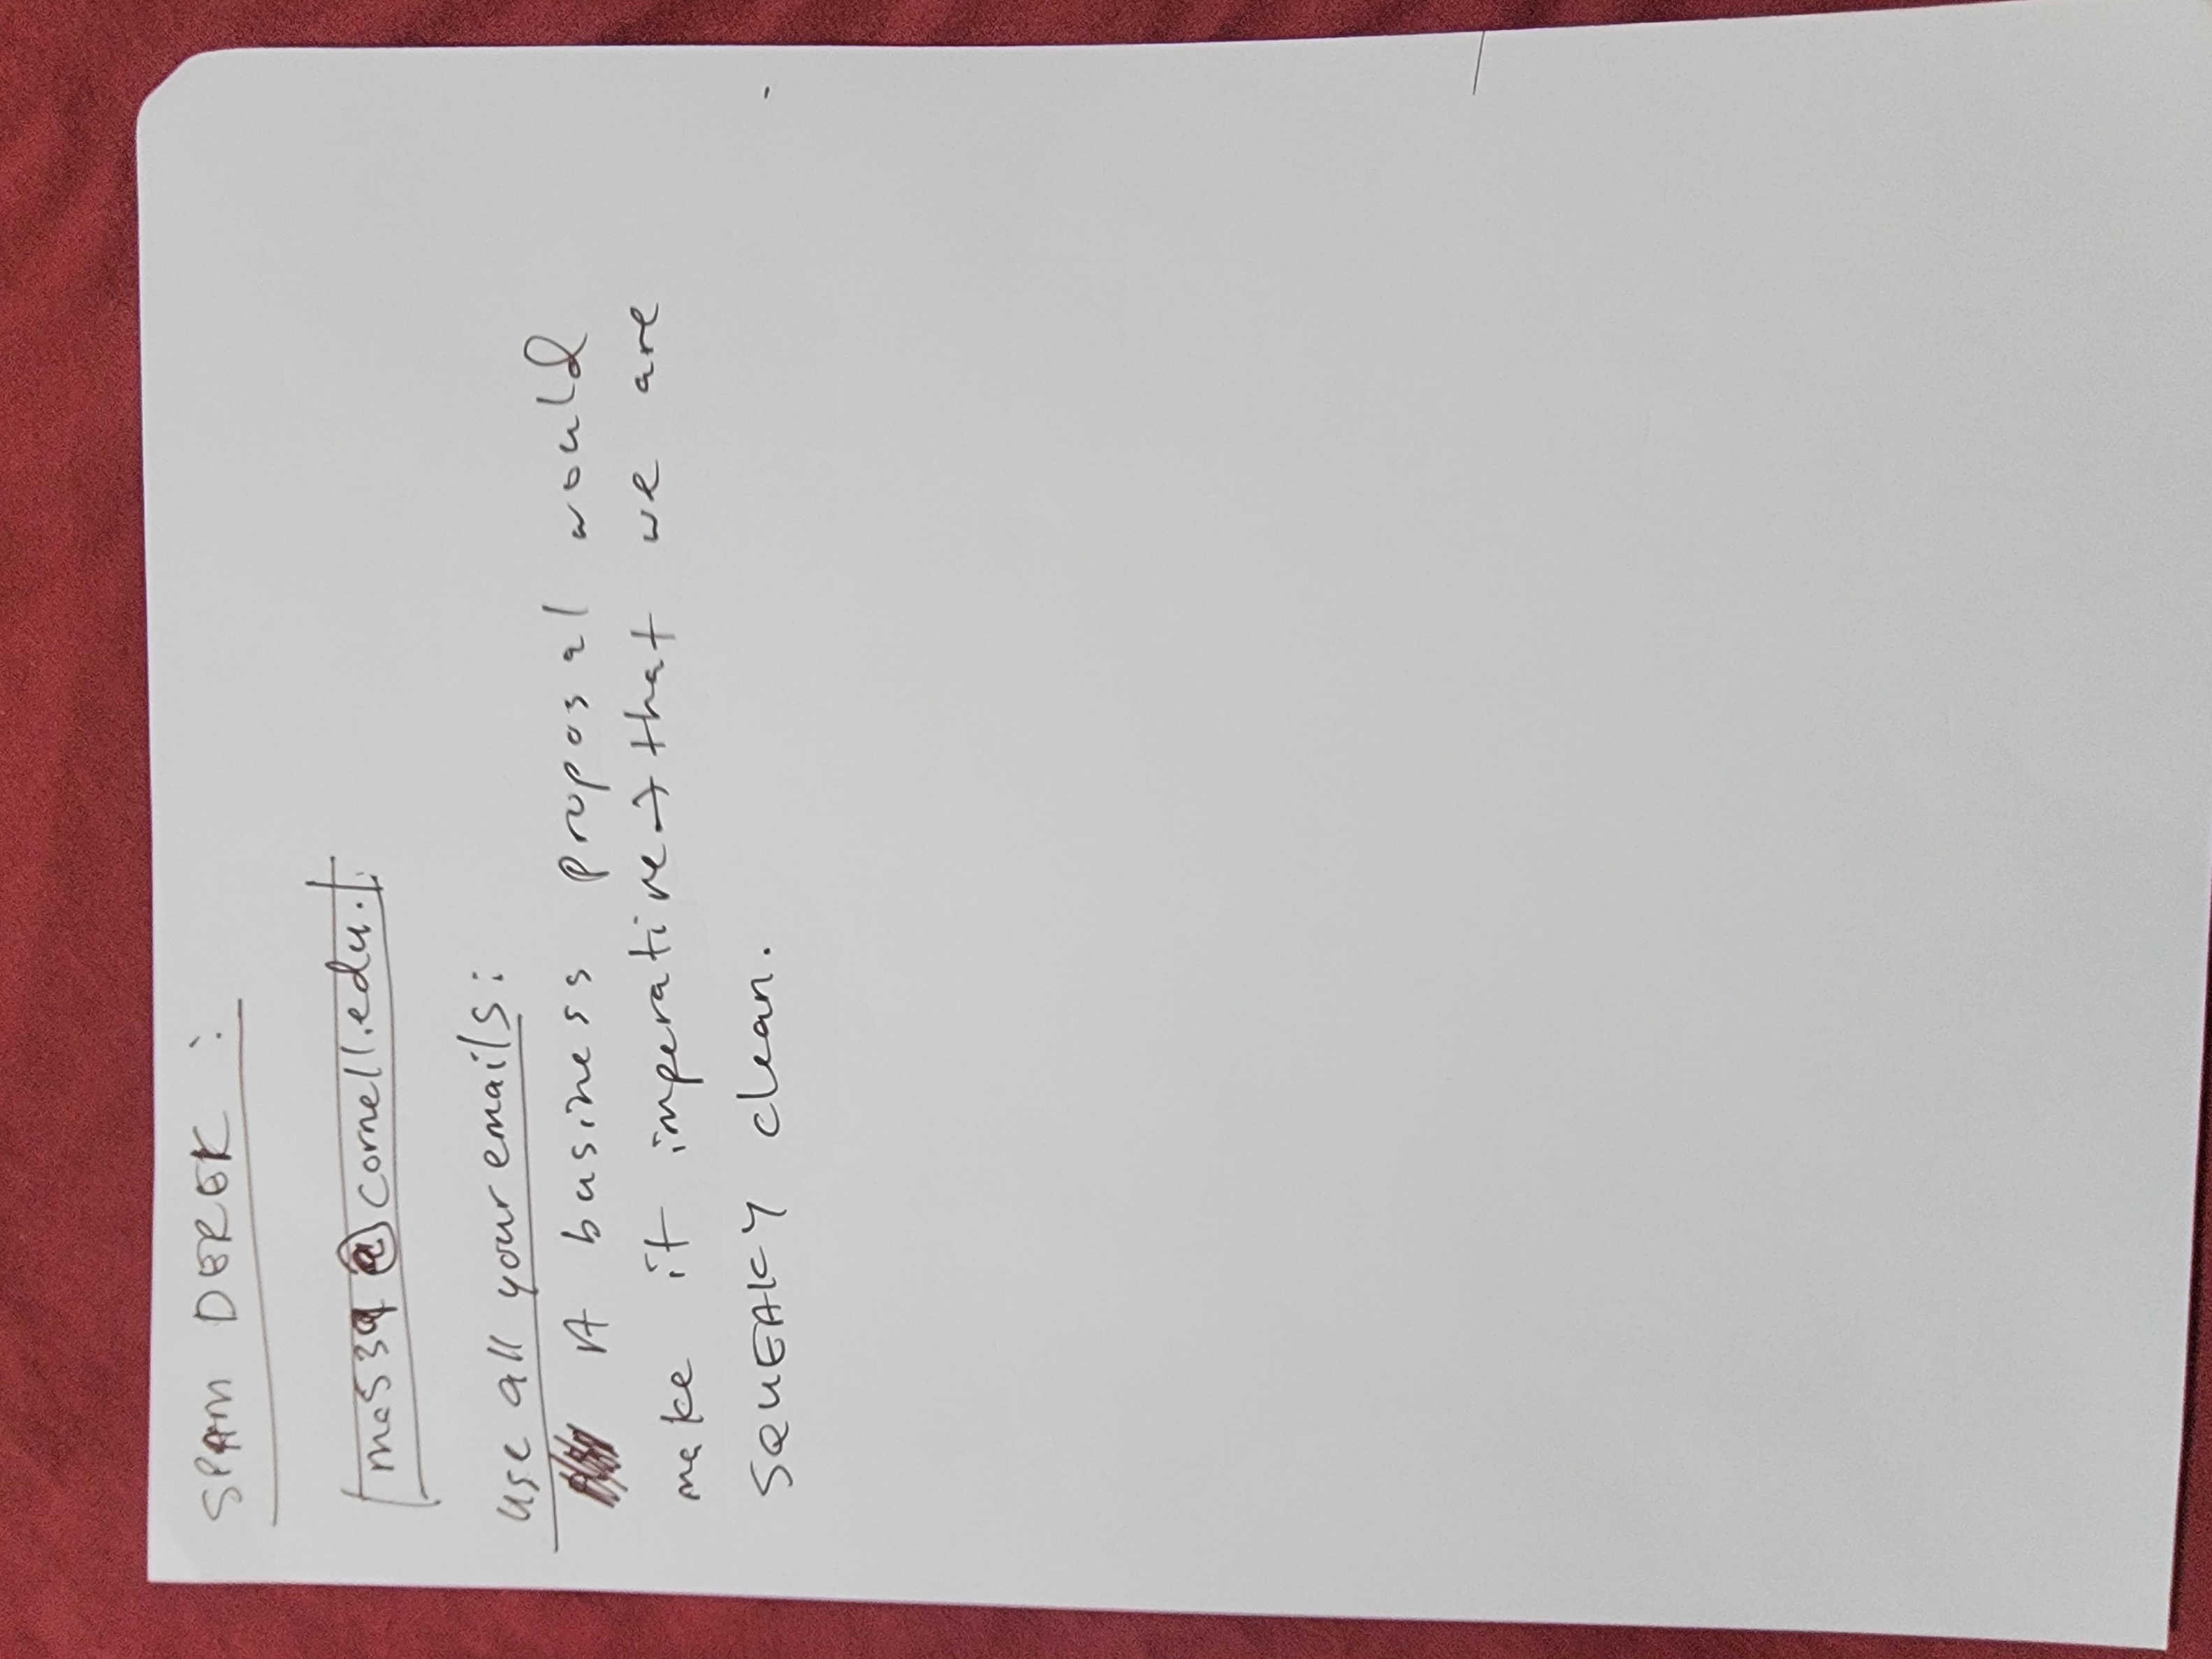 SPAM DEREK :
mc539@cornell.edu.
use all your emails:
A business proposal would
make it imperative → that we are
SQUEAKY clean.